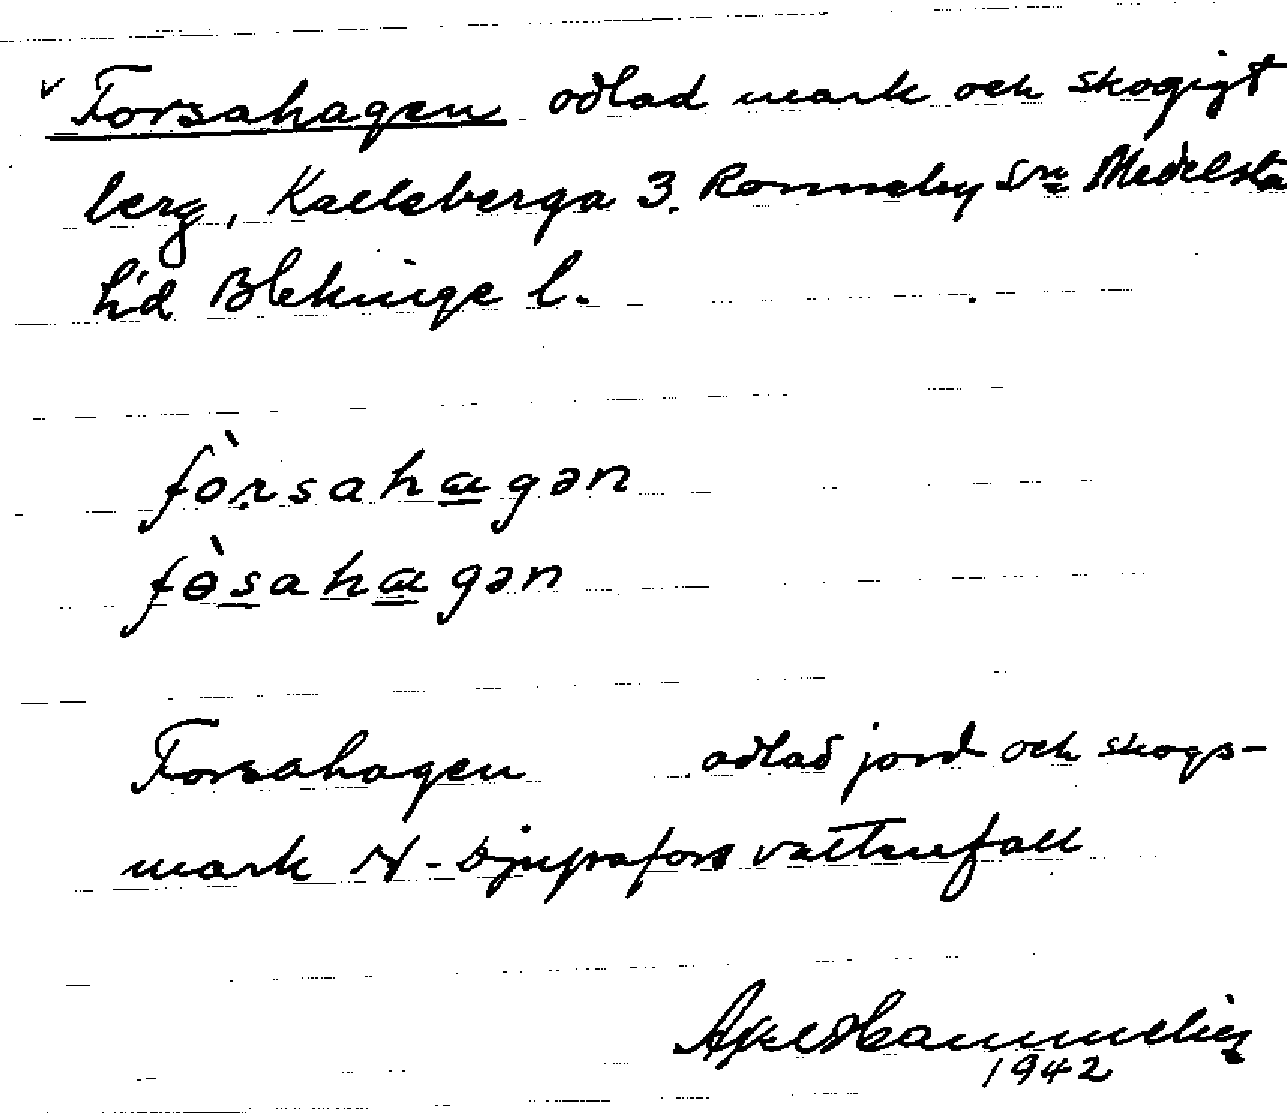 v Forsahagen odlad mark och skogigt
berg, Kalleberga 3. Ronneby sn Medelsta
hd Blekinge l.
fòrsahagən
fɵ̀sahagən
Forsahagen odlad jord och skogs-
mark N - Djupafors vattenfall
Axel Hammelin
1942